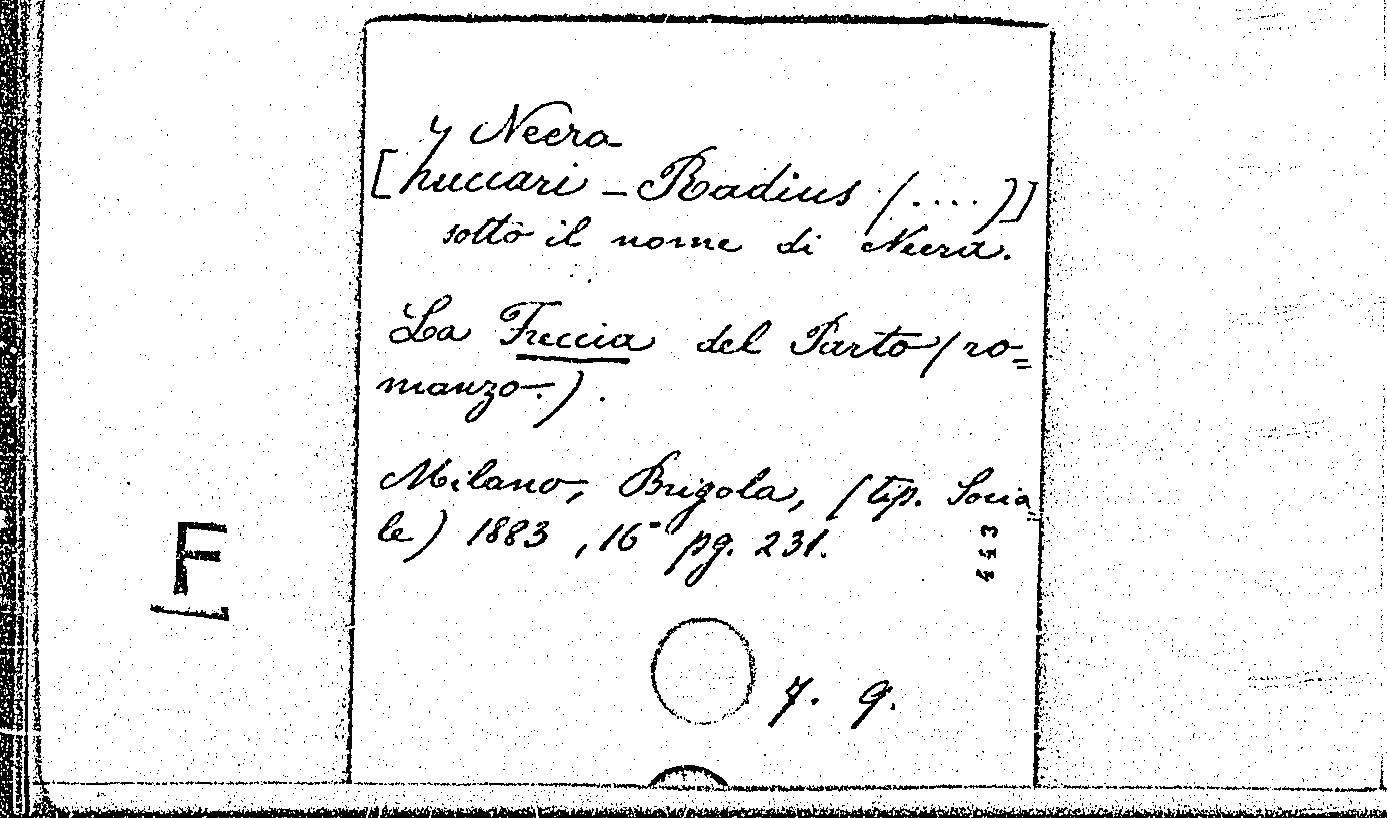 y Neera
[Zuccari - Radius (....)]
sotto il nome di Neera.
La Freccia del Parto (ro=
manzo.).
Milano, Brigola, (tip. Socia
le) 1883, 16° pg. 231.
443
F
7. 9.